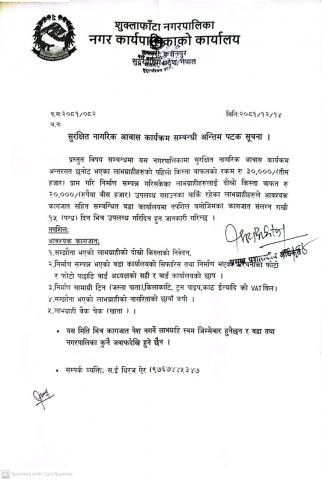 शुक्लाफाँटा नगरपालिका
नगर कार्यपालिकाको कार्यालय
सुदूरपश्चिम प्रदेश, नेपाल
प.सः२०८१/०८२
मितिः२०८१/१२/१४
च.नः
सुरक्षित नागरिक आवास कार्यक्रम सम्बन्धी अन्तिम पटक सूचना ।
प्रस्तुत विषय सम्बन्धमा यस नगरपालिकामा सुरक्षित नागरिक आवास कार्यक्रम
अन्तरगत छनोट भएका लाभग्राहीहरुको पहिलो किस्ता वाफतको रकम रु ३०,०००/(तीस
हजार) प्राप्त गरि निर्माण सम्पन्न गरिसकेका लाभग्राहीहरुलाई दोश्रो किस्ता वाफत रु
२०,०००/(रुपैया बीस हजार) उपलव्ध गराउनका बाकि रहेका लाभग्राहीहरुले आवश्यक
कागजात सहित सम्बन्धित वडा कार्यालयमा तपशिल वमोजिमका कागजात संलग्न राखी
१५ (पन्ध्र) दिन भित्र उपलव्ध गरिदिन हुन जानकारी गरिन्छ ।
तपशिलः
आवश्यक कागजातः
१.सम्झौता भएको लाभग्राहीको दोश्रो किस्ताको निवेदन,
२.निर्माण सम्पन्न भएको वडा कार्यालयको सिफारिस तथा निर्माण भएको फोटो
र फोटो पछाडि वार्ड अध्यक्षको सही र वार्ड कार्यालयको छाप ।
३.निर्माण सामाग्री टिन (जस्ता पाता),किलाकाटि, ट्रस पाइप,काठ ईत्यादि को VAT विल।
४.सम्झौता भएको लाभग्राहीको नागरिताको छाँया कपी ।
५.लाभग्राही बैंक चेक (खाता) ।
प्रमुख प्रशासकीय अधिकृत
• यस मिति भित्र कागजात पेश नगर्ने लाभग्राहि स्वम जिम्मेवार हुनेछन र वडा तथा
नगरपालिका कुनै जवाफदेही हुने छैन ।
• सम्पर्क व्यक्तिः स.ई धिरज ऐर (९७६७४४५३४७)
Scanned with CamScanner